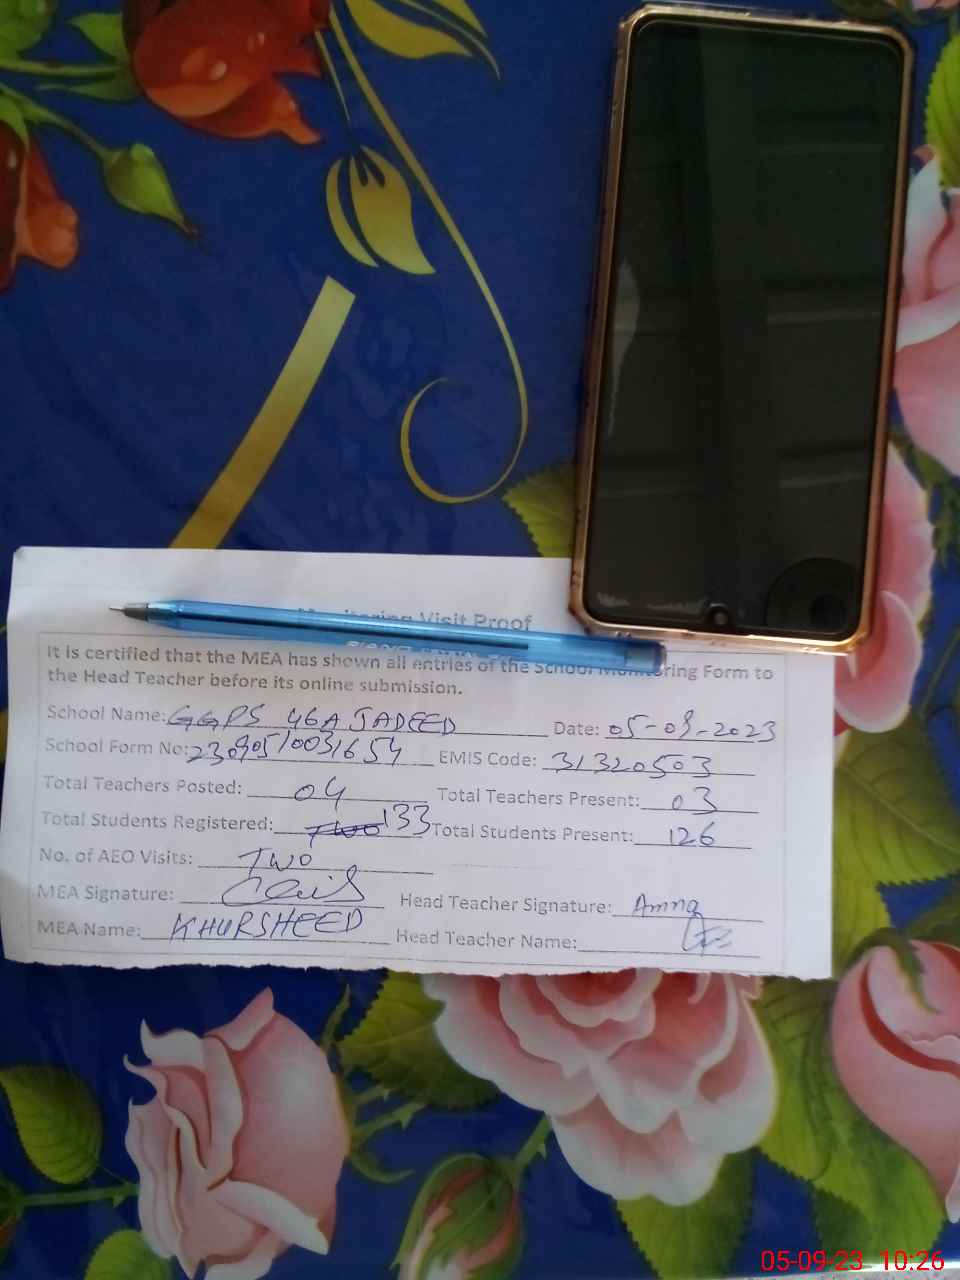 Monitoring Visit Proof
It is certified that the MEA has shown all entries of the School Monitoring Form to
the Head Teacher before its online submission.
School Name: GGPS 46A JADEED Date: 05-09-2023
School Form No: 230905/0031654 EMIS Code: 31320503
Total Teachers Posted: 04 Total Teachers Present: 03
Total Students Registered: 133 Total Students Present: 126
No. of AEO Visits: TWO
MEA Signature: Head Teacher Signature: Amna
MEA Name: KHURSHEED Head Teacher Name:
05-09-23 10:26